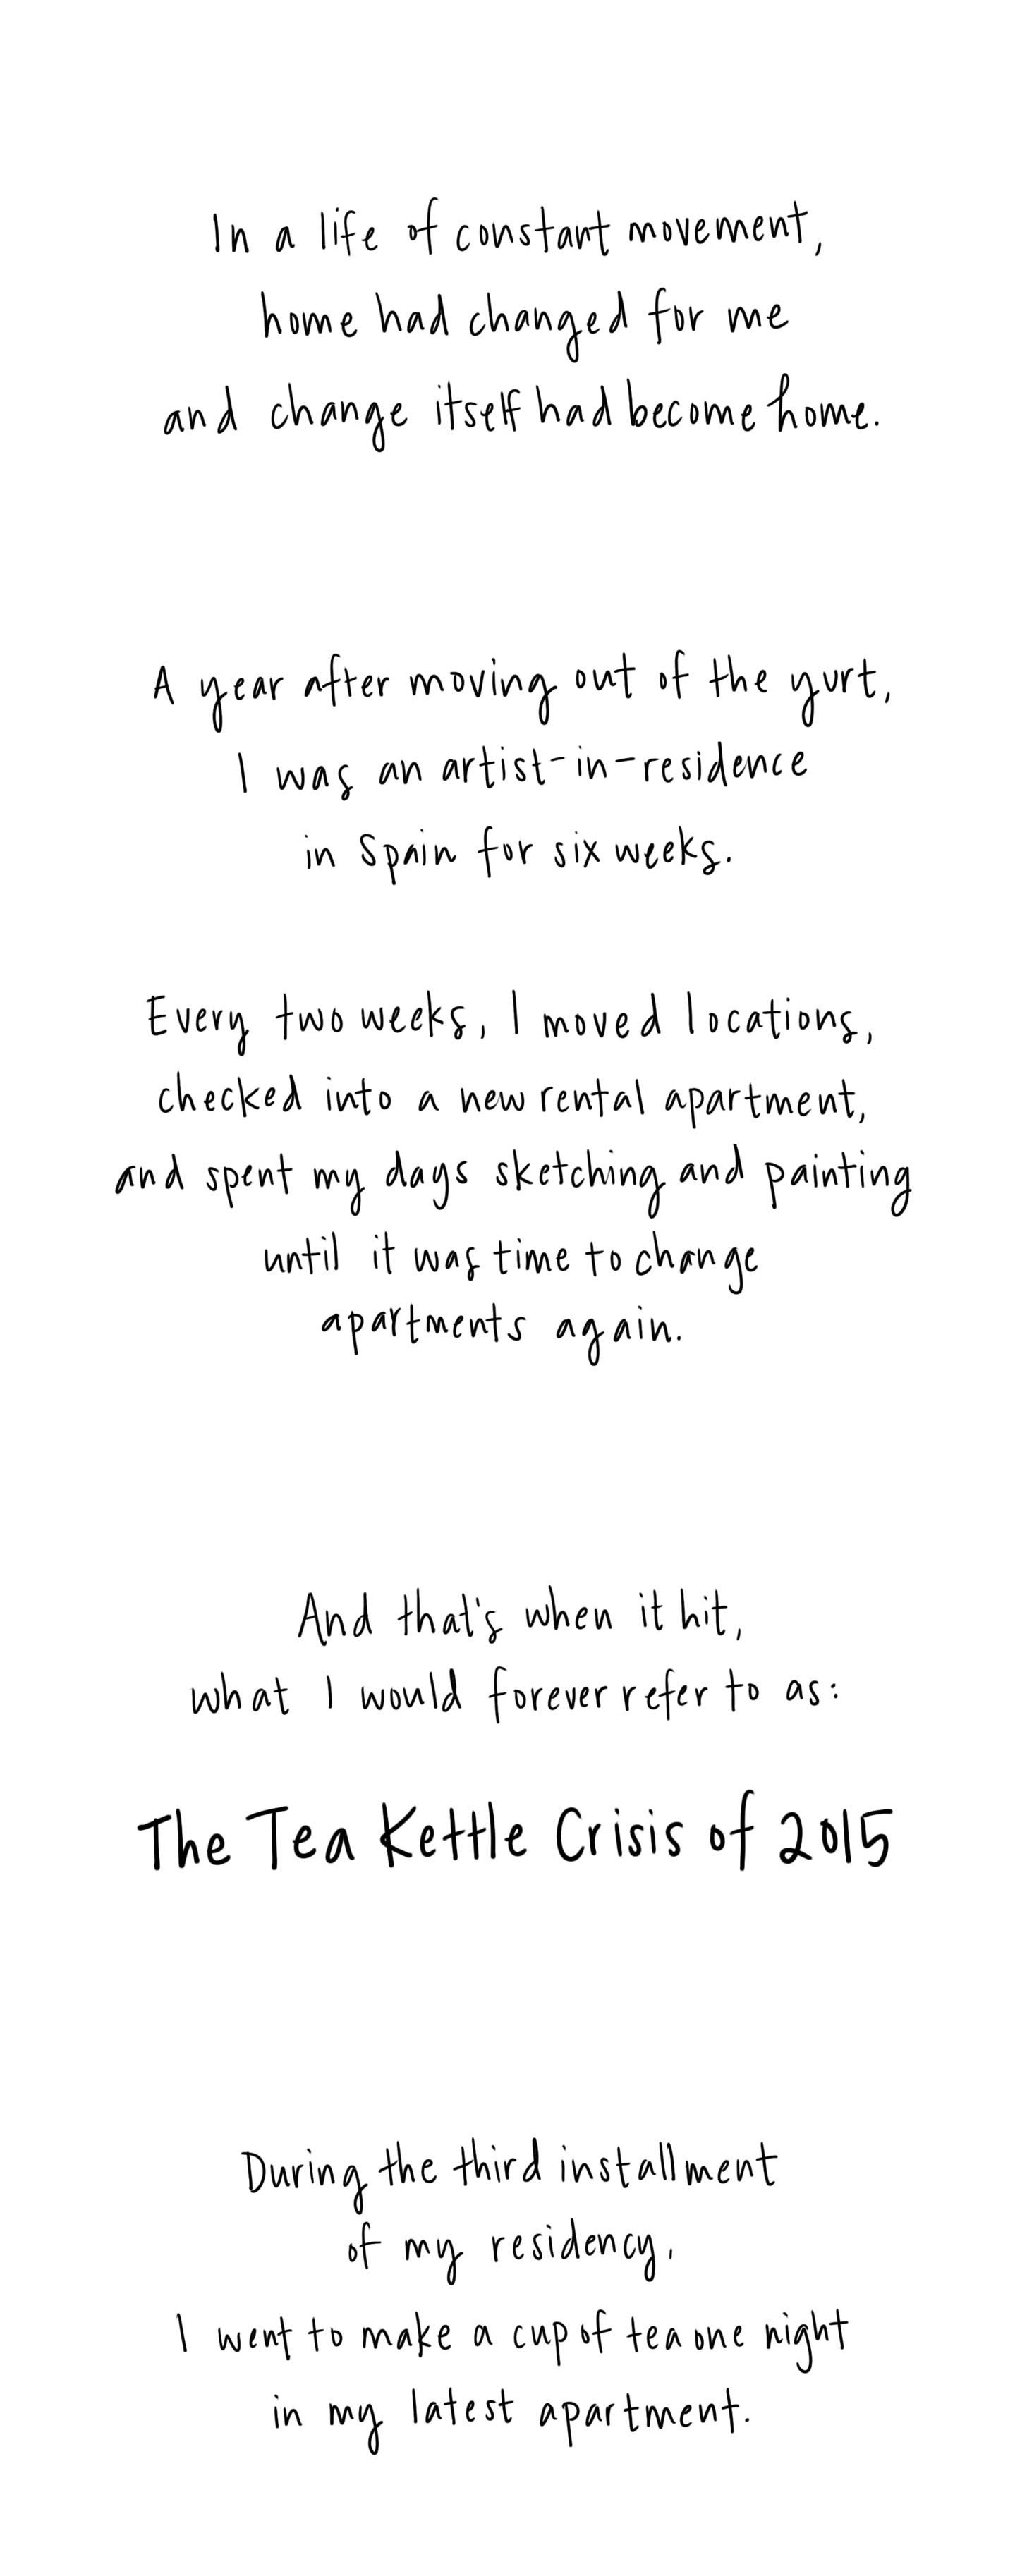 In a life of constant movement,
home had changed for me
and change itself had become home.
A year after moving out of the yurt,
I was an artist-in-residence
in Spain for six weeks.
Every two weeks, I moved locations,
checked into a new rental apartment,
and spent my days sketching and painting
until it was time to change
apartments again.
And that's when it hit,
what I would forever refer to as:
The Tea Kettle Crisis of 2015
During the third installment
of my residency,
I went to make a cup of tea one night
in my latest apartment.